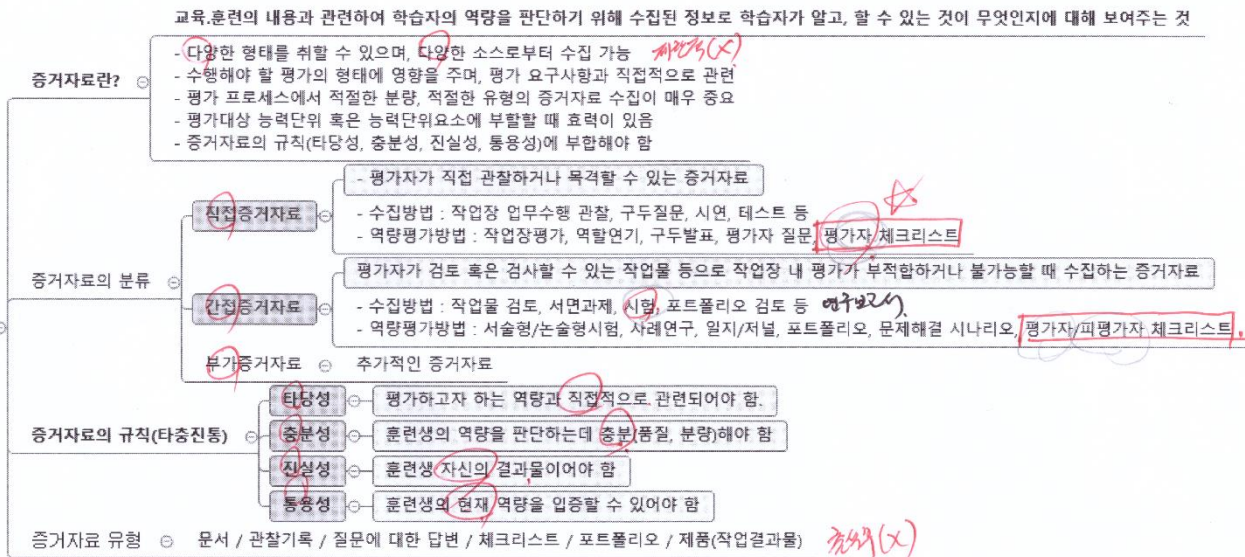 교육.훈련의 내용과 관련하여 학습자의 역량을 판단하기 위해 수집된 정보로 학습자가 알고, 할 수 있는 것이 무엇인지에 대해 보여주는 것
증거자료란?
- 다양한 형태를 취할 수 있으며, 다양한 소스로부터 수집 가능
- 수행해야 할 평가의 형태에 영향을 주며, 평가 요구사항과 직접적으로 관련
- 평가 프로세스에서 적절한 분량, 적절한 유형의 증거자료 수집이 매우 중요
- 평가대상 능력단위 혹은 능력단위요소에 부할할 때 효력이 있음
- 증거자료의 규칙(타당성, 충분성, 진실성, 통용성)에 부합해야 함
증거자료의 분류
직접증거자료
- 평가자가 직접 관찰하거나 목격할 수 있는 증거자료
- 수집방법 : 작업장 업무수행 관찰, 구두질문, 시연, 테스트 등
- 역량평가방법 : 작업장평가, 역할연기, 구두발표, 평가자 질문, 평가자 체크리스트
간접증거자료
평가자가 검토 혹은 검사할 수 있는 작업물 등으로 작업장 내 평가가 부적합하거나 불가능할 때 수집하는 증거자료
- 수집방법 : 작업물 검토, 서면과제, 시험, 포트폴리오 검토 등 연구보고서
- 역량평가방법 : 서술형/논술형시험, 사례연구, 일지/저널, 포트폴리오, 문제해결 시나리오, 평가자/피평가자 체크리스트
부가증거자료
추가적인 증거자료
증거자료의 규칙(타충진통)
타당성
평가하고자 하는 역량과 직접적으로 관련되어야 함.
충분성
훈련생의 역량을 판단하는데 충분(품질, 분량)해야 함
진실성
훈련생 자신의 결과물이어야 함
통용성
훈련생의 현재 역량을 입증할 수 있어야 함
증거자료 유형
문서 / 관찰기록 / 질문에 대한 답변 / 체크리스트 / 포트폴리오 / 제품(작업결과물)